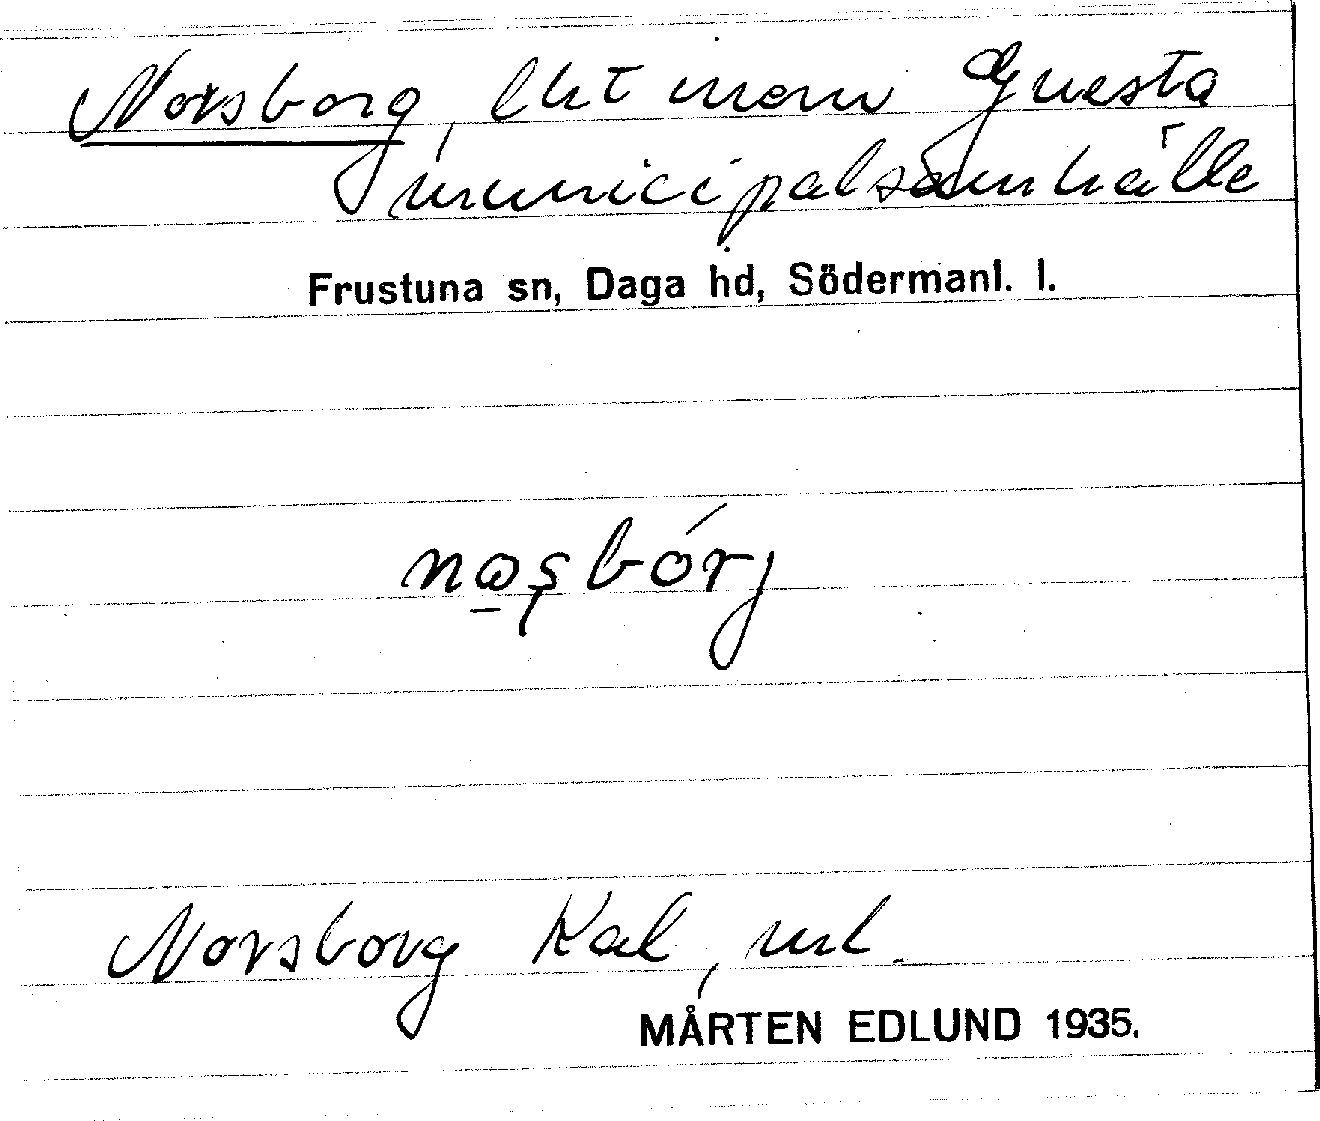 Norsborg, lht inom Gnesta
municipalsamhälle
Frustuna sn, Daga hd, Södermanl. l.
Norsborg Kal, url.
MÅRTEN EDLUND 1935.